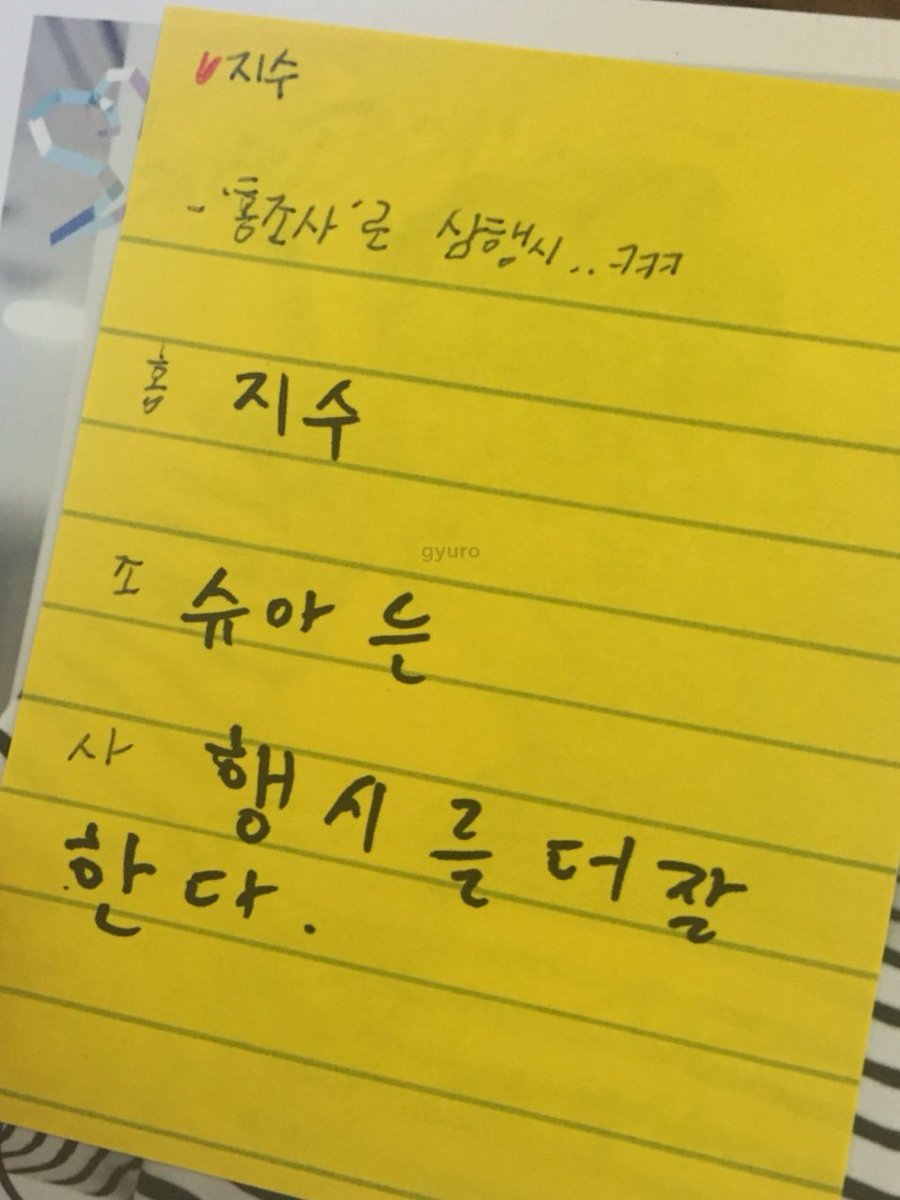 지수
- '홍조사'로 삼행시..ㅋㅋㅋ
홍 지수
gyuro
조 슈아 는
사 행시를더잘
한다.